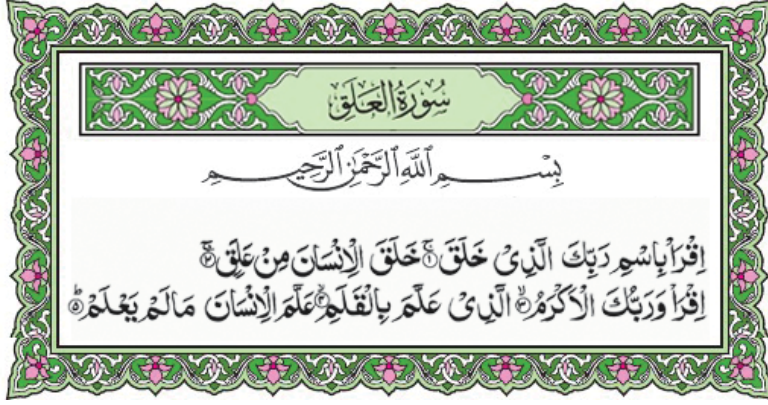 سُورَةُ الْعَلَقِ
بِسْمِ اللَّهِ الرَّحْمَٰنِ الرَّحِيمِ
اِقْرَاْ بِاسْمِ رَبِّكَ الَّذِیْ خَلَقَ ۚ۝۱ خَلَقَ الْاِنْسَانَ مِنْ عَلَقٍ ۚ۝۲
اِقْرَاْ وَرَبُّكَ الْاَكْرَمُ ۙ۝۳ الَّذِیْ عَلَّمَ بِالْقَلَمِ ۙ۝۴ عَلَّمَ الْاِنْسَانَ مَا لَمْ یَعْلَمْ ؕ۝۵